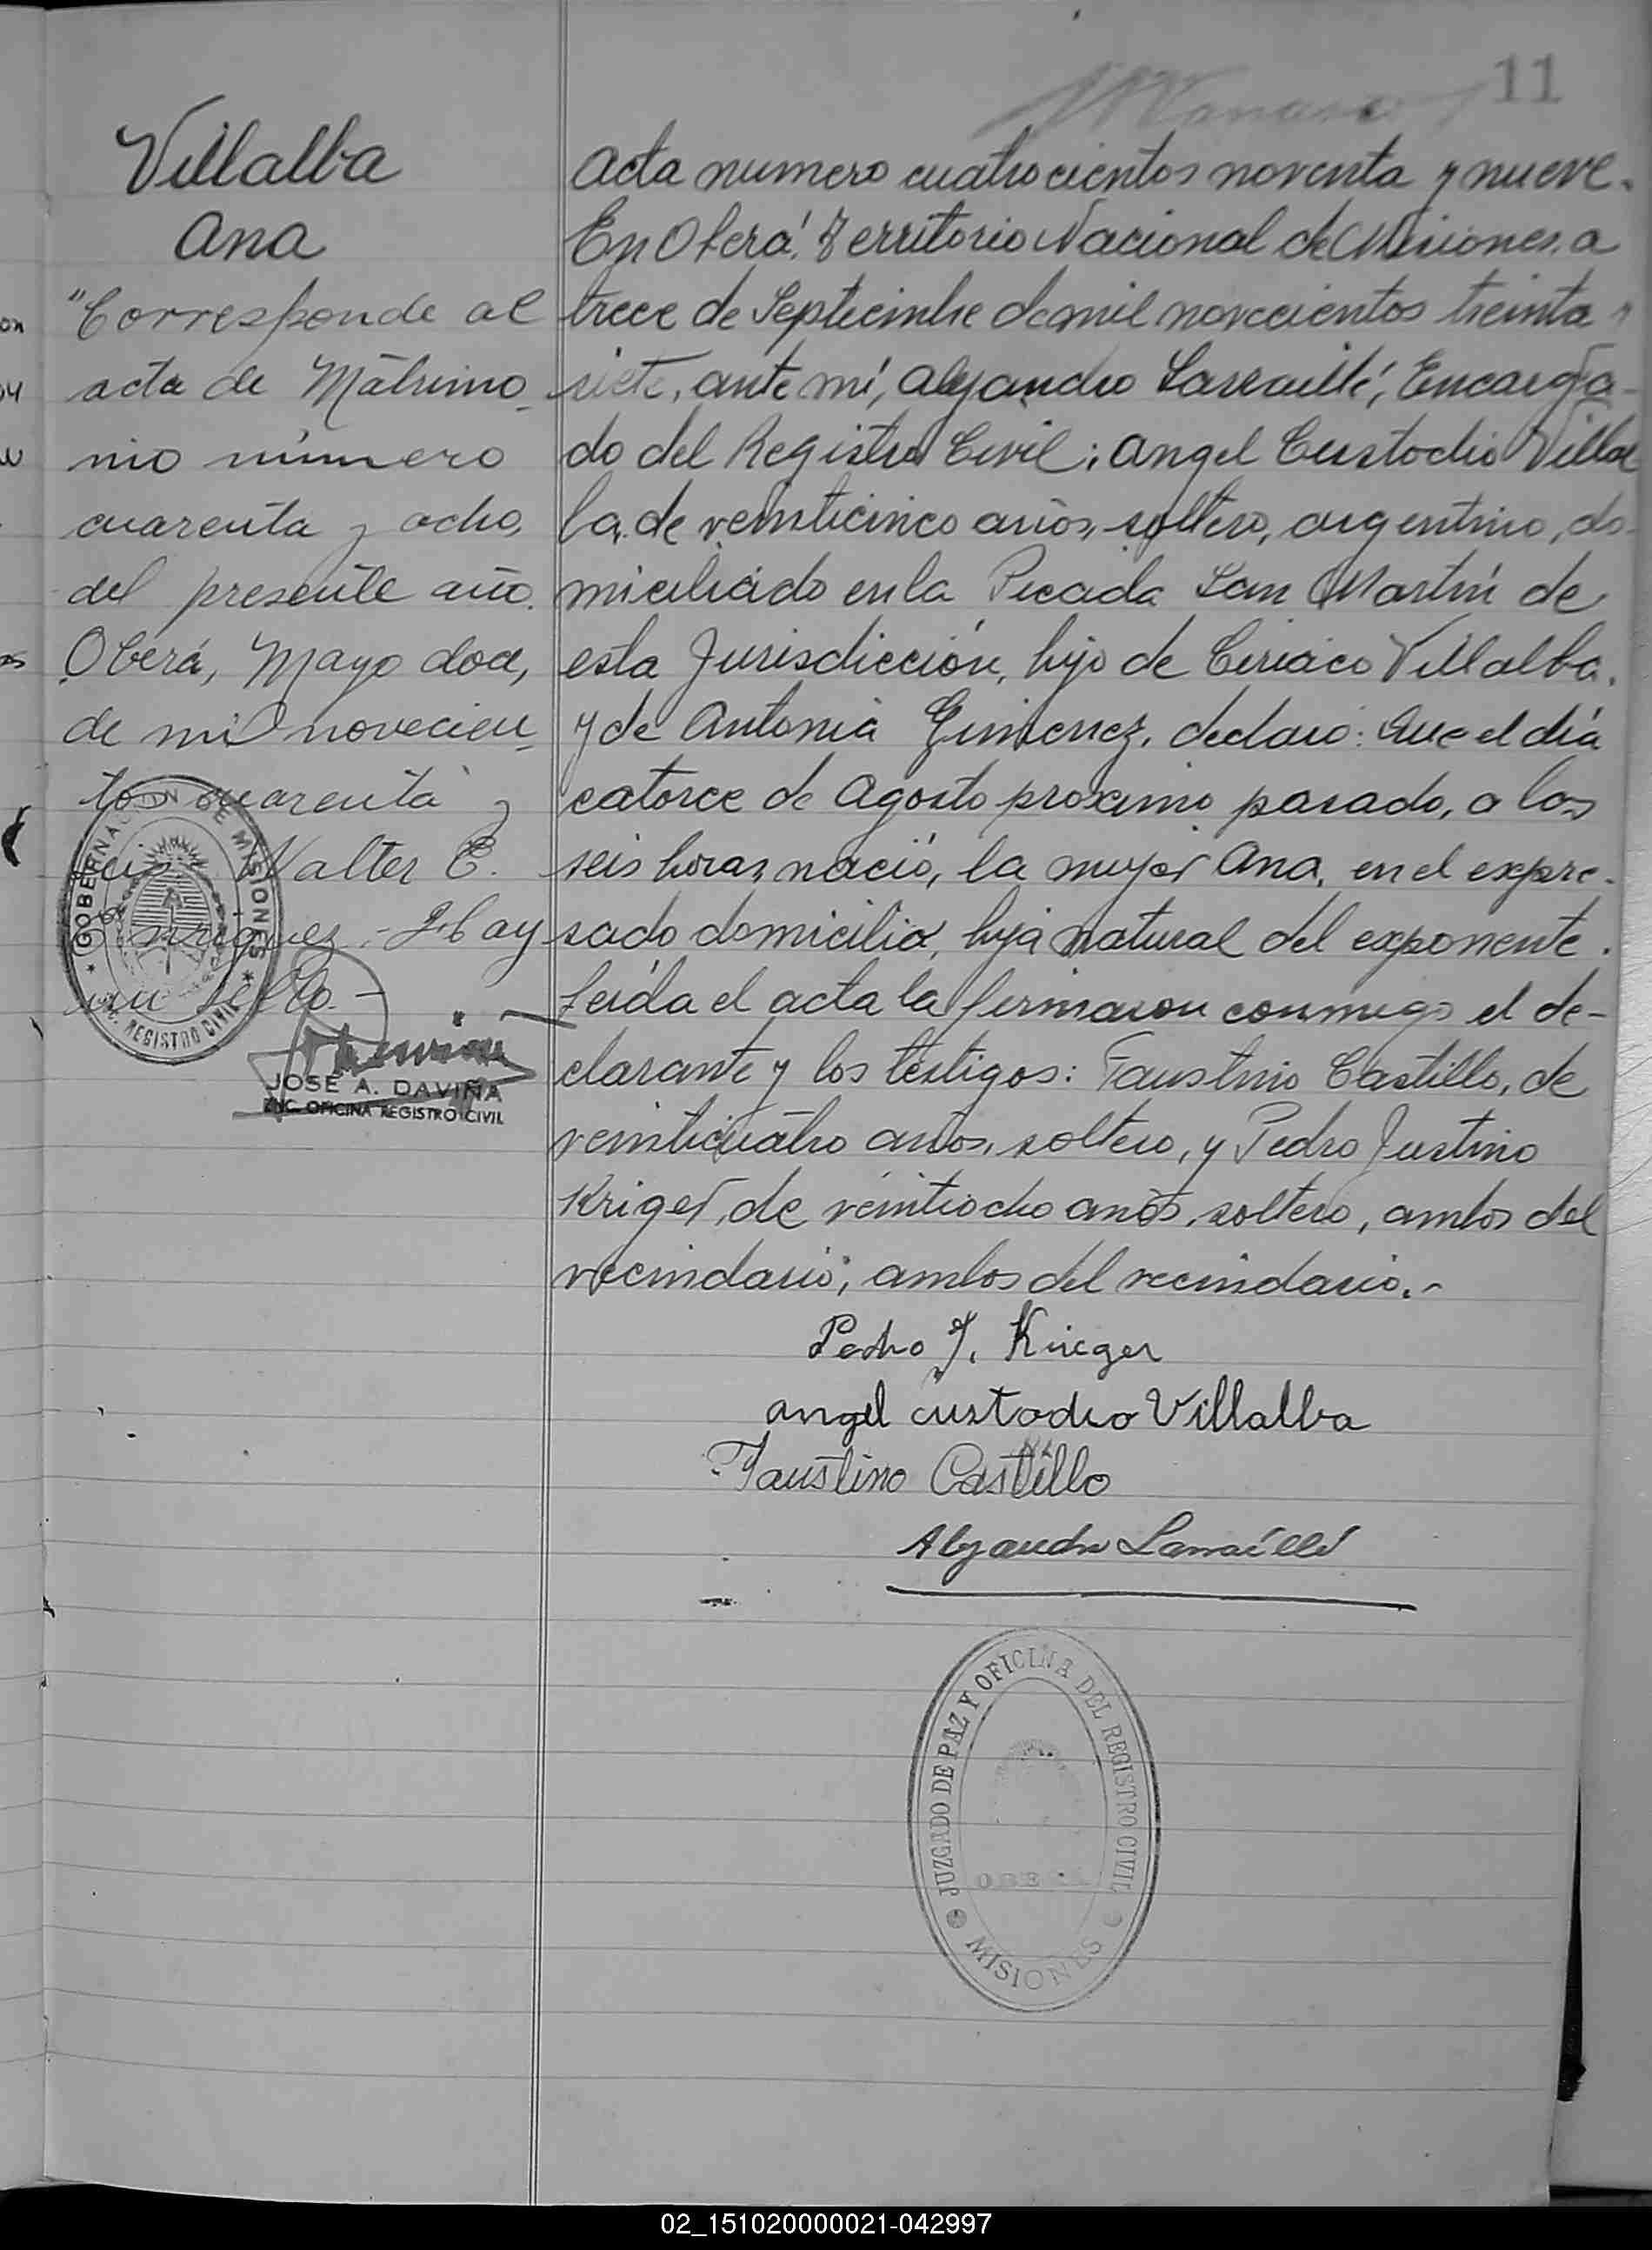 11
Villalba
Ana
"Corresponde al
acta de Matrimo_
nio número
cuarenta y ocho,
del presente año.
Oberá, Mayo doce,
de mil novecien_
tos cuarenta y
seis. Walter E.
Enriquez.- Hay
un sello.-
GOBERNACION DE MISIONES
REGISTRO CIVIL
JOSÉ A. DAVIÑA
ENC. OFICINA REGISTRO CIVIL
Acta numero cuatrocientos noventa y nueve.
En Oberá, Territorio Nacional de Misiones, a
trece de Septiembre de mil novecientos treinta y
siete, ante mí, Alejandro Larraillé, Encarga-
do del Registro Civil; Angel Custodio Villal
ba, de veinticinco años, soltero, argentino, do-
miciliado en la Picada San Martín de
esta Jurisdicción, hijo de Ciriaco Villalba,
y de Antonia Gimenez, declaró: Que el día
catorce de Agosto proximo pasado, a las
seis horas, nació, la mujer Ana, en el expre-
sado domicilio, hija natural del exponente.
Leída el acta la firmaron conmigo el de-
clarante y los testigos: Faustino Castillo, de
veinticuatro años, soltero, y Pedro Justino
Kriger, de veintiocho años, soltero, ambos del
vecindario; ambos del vecindario.-
Pedro J. Krieger
angel custodio Villalba
Faustino Castillo
Alejandro Larraillé
JUZGADO DE PAZ Y OFICINA DEL REGISTRO CIVIL
OBERA
MISIONES
02_151020000021-042997